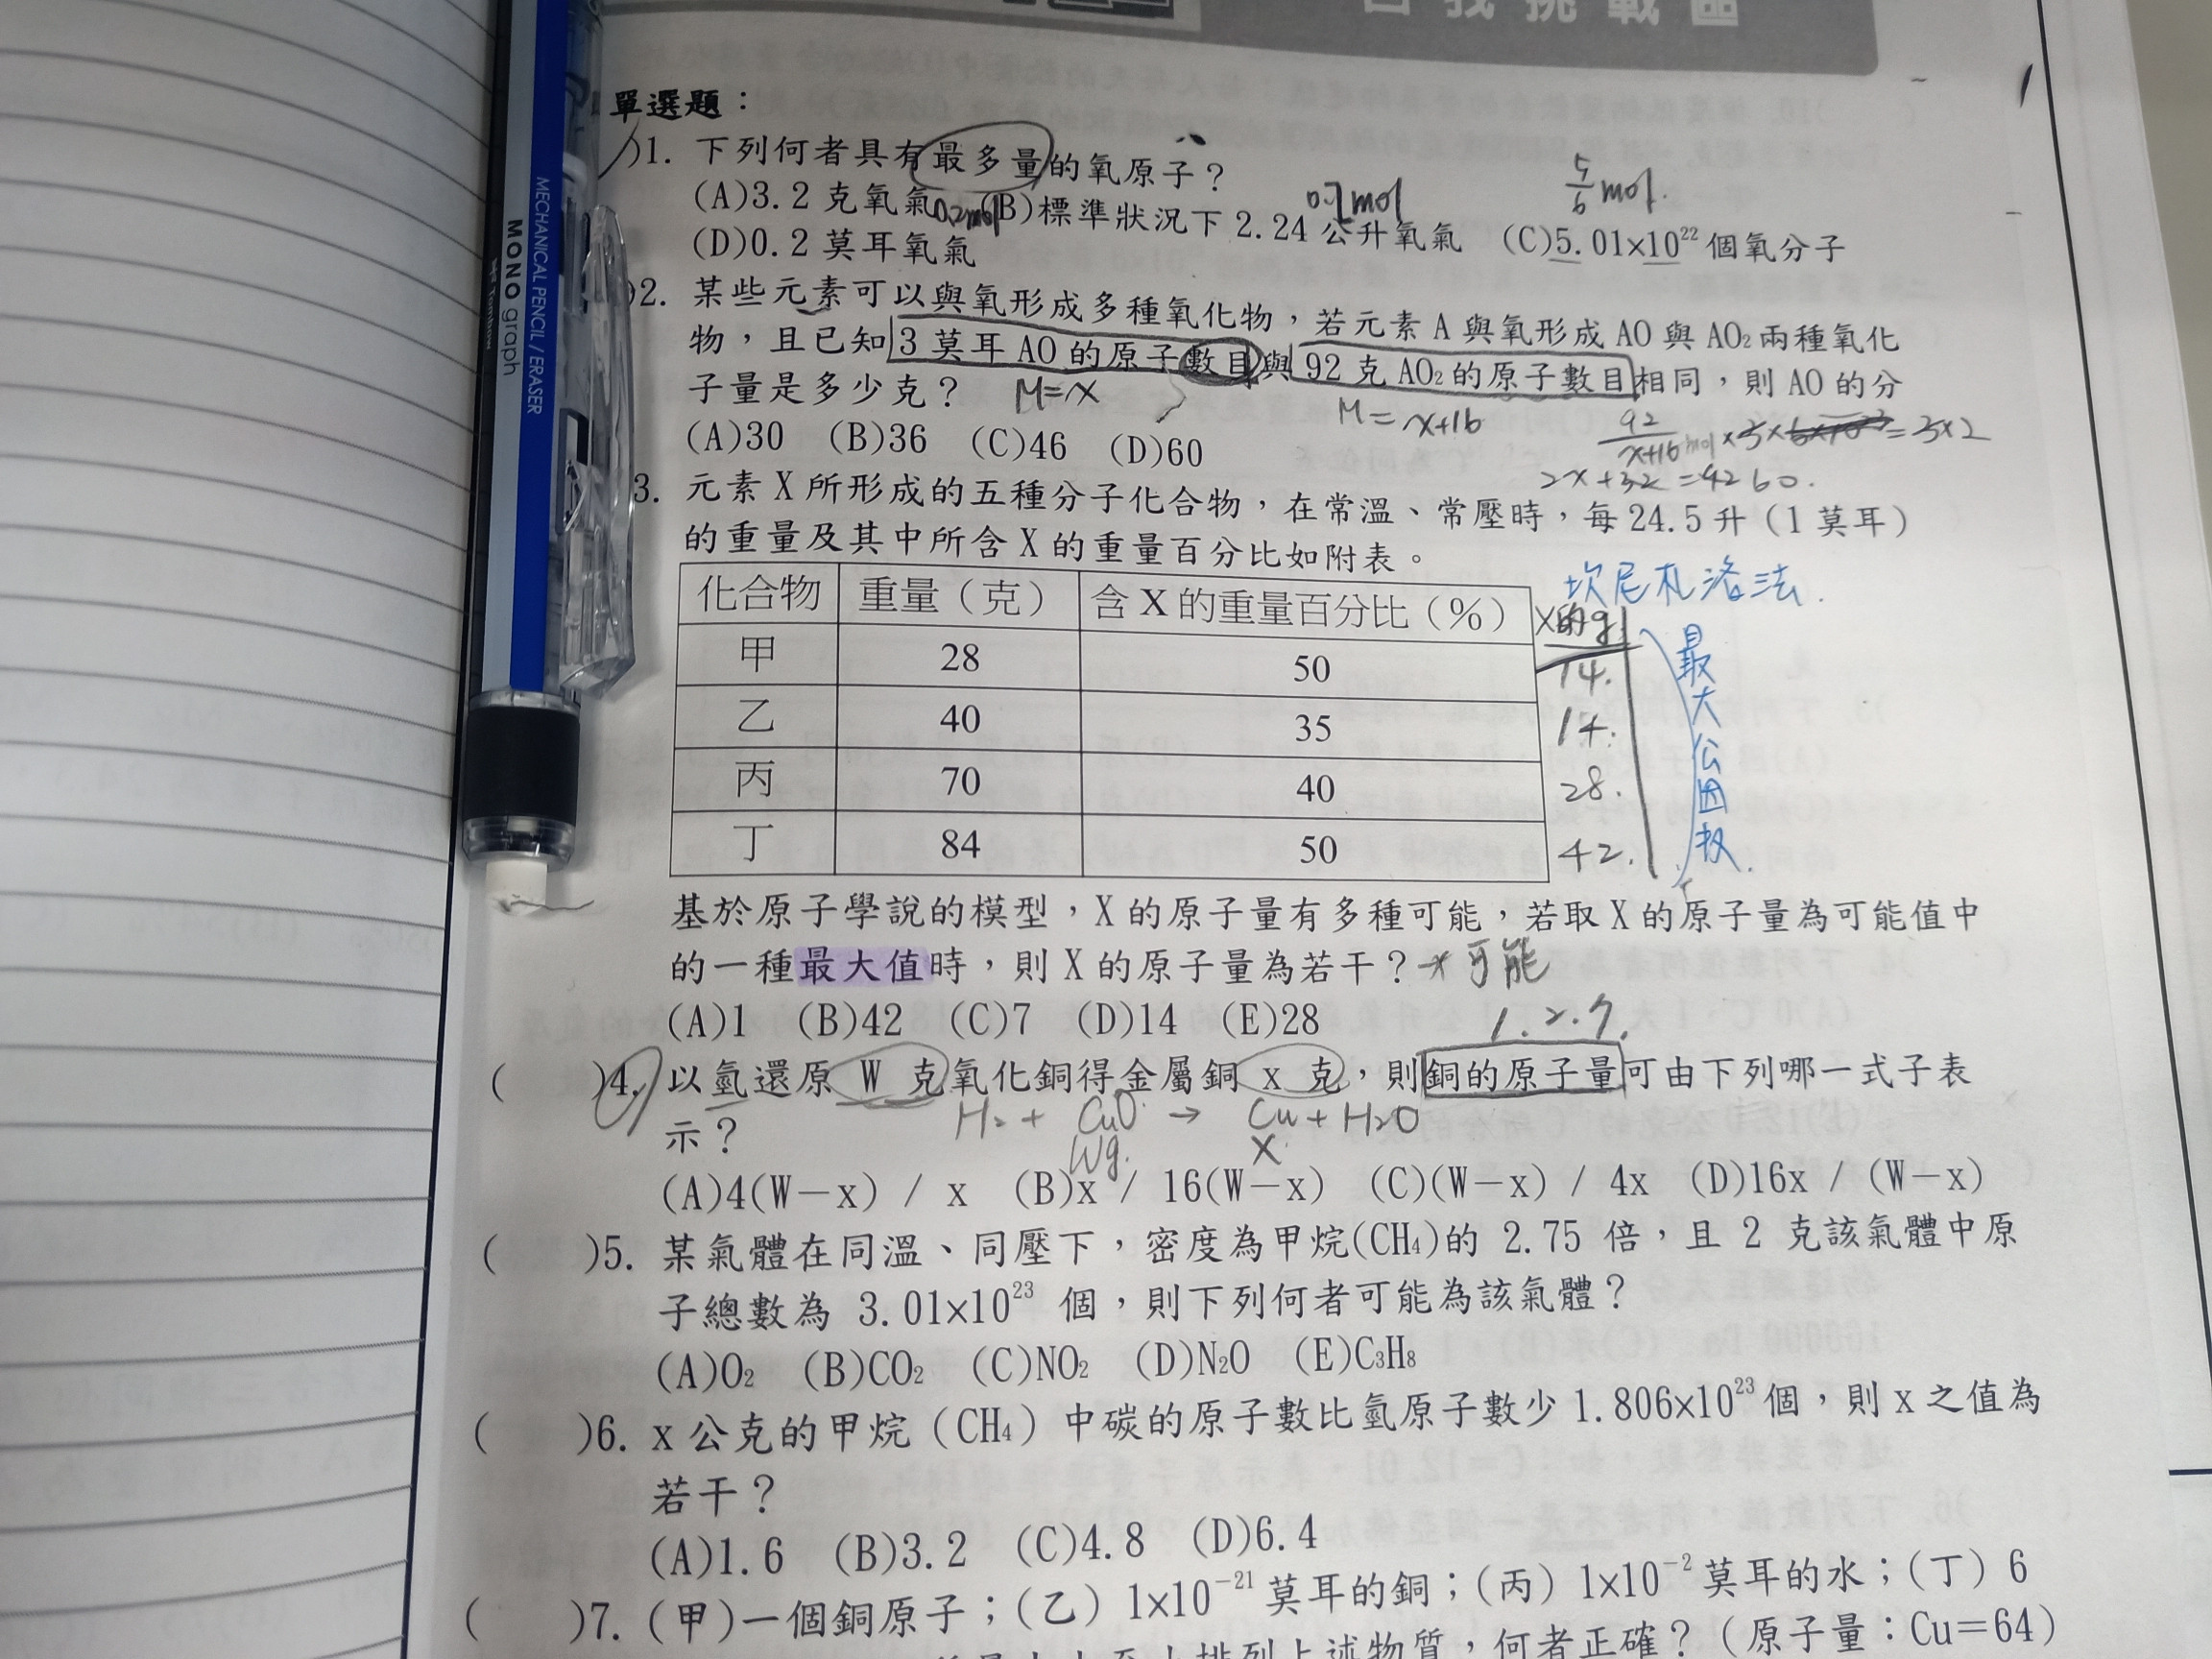 自我挑戰區
MECHANICAL PENCIL / ERASER
MONO graph
Tombow
單選題：
)1. 下列何者具有最多量的氧原子？
(A)3.2 克氧氣 0.2mol (B)標準狀況下 2.24 公升氧氣 (C)5.01×10²² 個氧分子
5/6 mol.
(D)0.2 莫耳氧氣
)2. 某些元素可以與氧形成多種氧化物，若元素 A 與氧形成 AO 與 AO₂ 兩種氧化
物，且已知 3 莫耳 AO 的原子數目與 92 克 AO₂ 的原子數目相同，則 AO 的分
子量是多少克？ M=x
M = x+16
(A)30 (B)36 (C)46 (D)60
3. 元素 X 所形成的五種分子化合物，在常溫、常壓時，每 24.5 升（1 莫耳）
的重量及其中所含 X 的重量百分比如附表。
坎尼札洛法.
化合物 重量（克） 含 X 的重量百分比（%） X的g
甲 28 50 14.
乙 40 35 14.
丙 70 40 28.
丁 84 50 42.
最大公因
基於原子學說的模型，X 的原子量有多種可能，若取 X 的原子量為可能值中
的一種最大值時，則 X 的原子量為若干？ 可能
(A)1 (B)42 (C)7 (D)14 (E)28 1.2.7.
( )4. 以氫還原 W 克氧化銅得金屬銅 x 克，則銅的原子量可由下列哪一式子表
示？ H₂ + CuO → Cu + H₂O
Wg. X
(A)4(W－x) / x (B)x / 16(W－x) (C)(W－x) / 4x (D)16x / (W－x)
( )5. 某氣體在同溫、同壓下，密度為甲烷(CH₄)的 2.75 倍，且 2 克該氣體中原
子總數為 3.01×10²³ 個，則下列何者可能為該氣體？
(A)O₂ (B)CO₂ (C)NO₂ (D)N₂O (E)C₃H₈
( )6. x 公克的甲烷（CH₄）中碳的原子數比氫原子數少 1.806×10²³ 個，則 x 之值為
若干？
(A)1.6 (B)3.2 (C)4.8 (D)6.4
( )7. (甲)一個銅原子；(乙) 1×10⁻²¹ 莫耳的銅；(丙) 1×10⁻² 莫耳的水；(丁) 6
排列上述物質，何者正確？（原子量：Cu＝64）